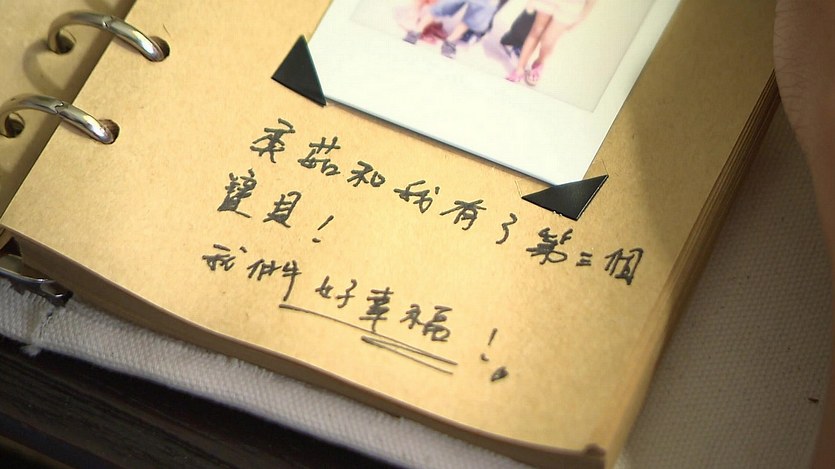 和我有了第三個
寶貝!
我們好幸福!